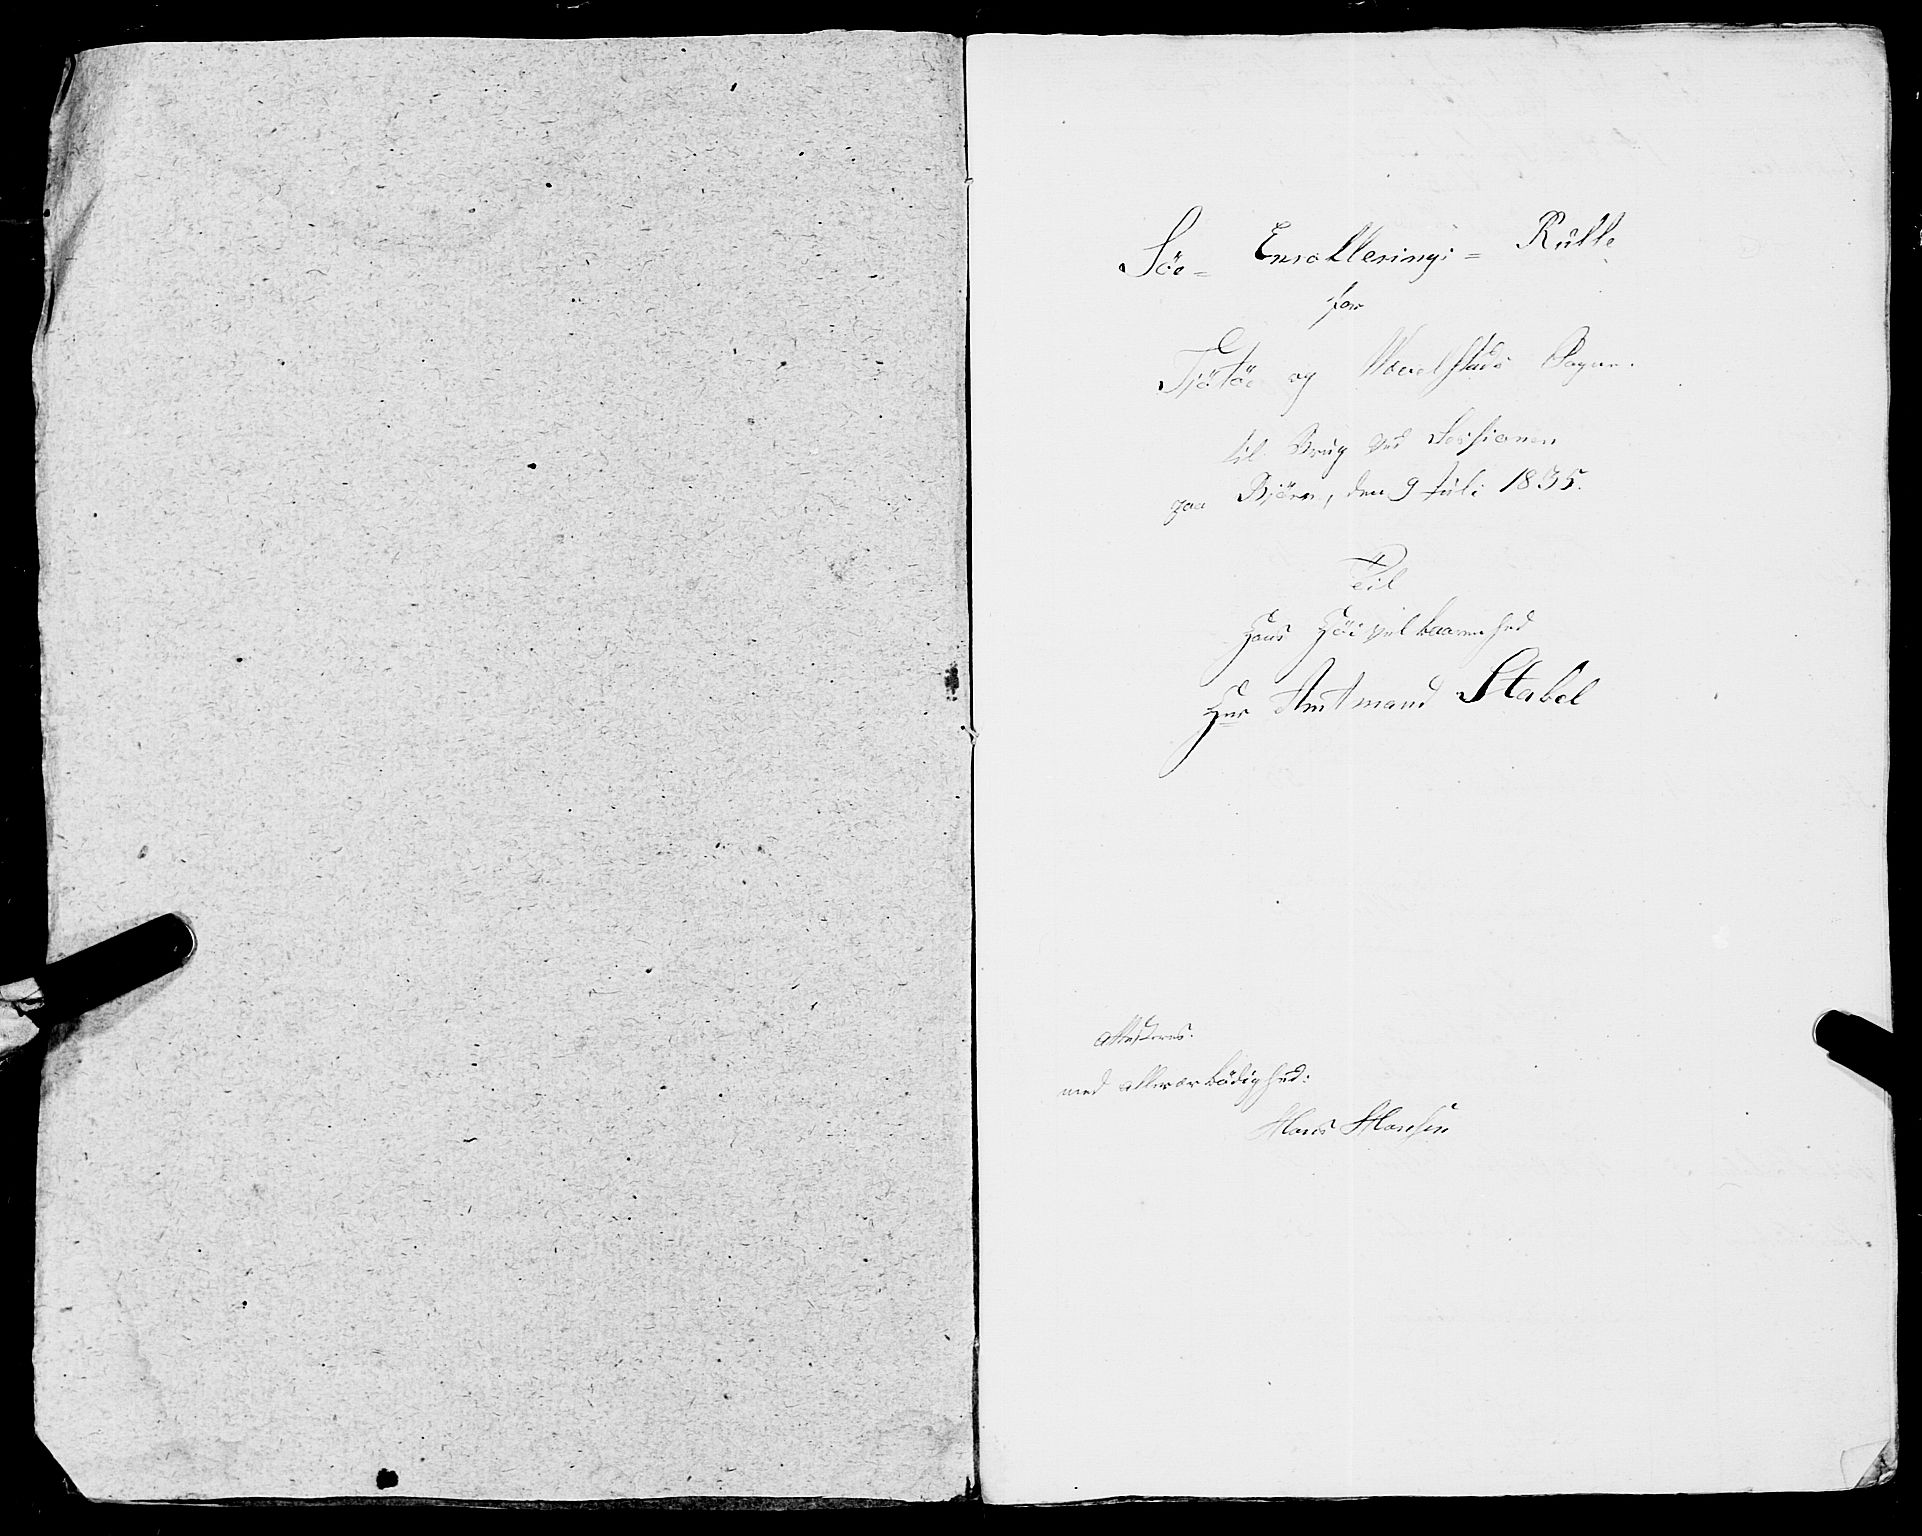 Söe- Enrollerings= Rulle
for
Tjötöe og Wævelstads Sogne.
til Brug ved Sessionen
paa Bjørn, den 9 Juli 1835.
Til
Hans Höivelbaarenhed
Hr Amtmand Stabel
attesteres.
med allerærbödighed:
Hans Hansen